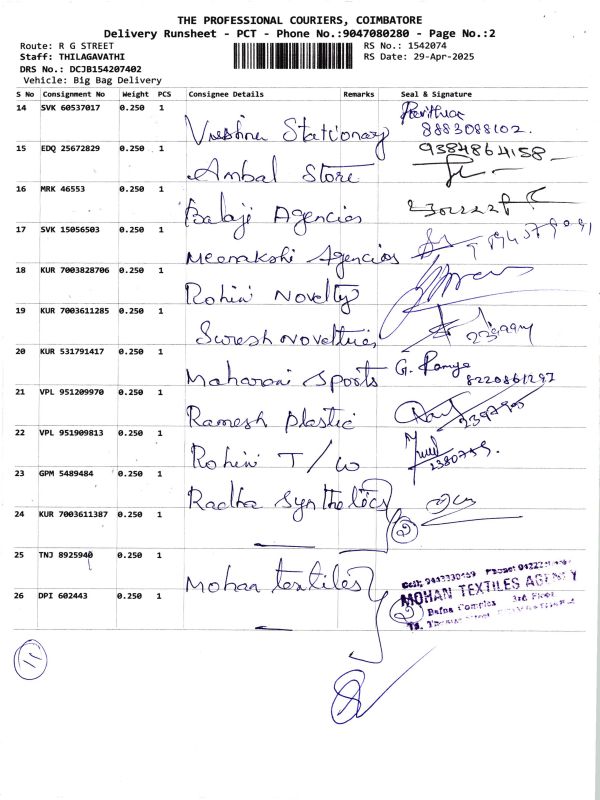 THE PROFESSIONAL COURIERS, COIMBATORE
Delivery Runsheet - PCT - Phone No.:9047080280 - Page No.:2
Route: R G STREET RS No.: 1542074
Staff: THILAGAVATHI RS Date: 29-Apr-2025
DRS No.: DCJB154207402
Vehicle: Big Bag Delivery
S No Consignment No Weight PCS Consignee Details Remarks Seal & Signature
14 SVK 60537017 0.250 1 Stationary 8883088102.
15 EDQ 25672829 0.250 1 Ambal Store 9384864158
16 MRK 46553 0.250 1 Balaji Agencies
17 SVK 15056503 0.250 1 Meenakshi Agencies
18 KUR 7003828706 0.250 1 Rohini Novelty
19 KUR 7003611285 0.250 1 Suresh Novelties
20 KUR 531791417 0.250 1 Maharani Sports G. Ramya
8220861297
21 VPL 951209970 0.250 1 Ramesh Plastic
22 VPL 951909813 0.250 1 Rohini T/W 2380759.
23 GPM 5489484 0.250 1 Radha Synthetics
24 KUR 7003611387 0.250 1 2
25 TNJ 8925940 0.250 1 Mohan textiles
MOHAN TEXTILES AGENCY
26 DPI 602443 0.250 1 2 Bafna Complex 3rd Floor
11